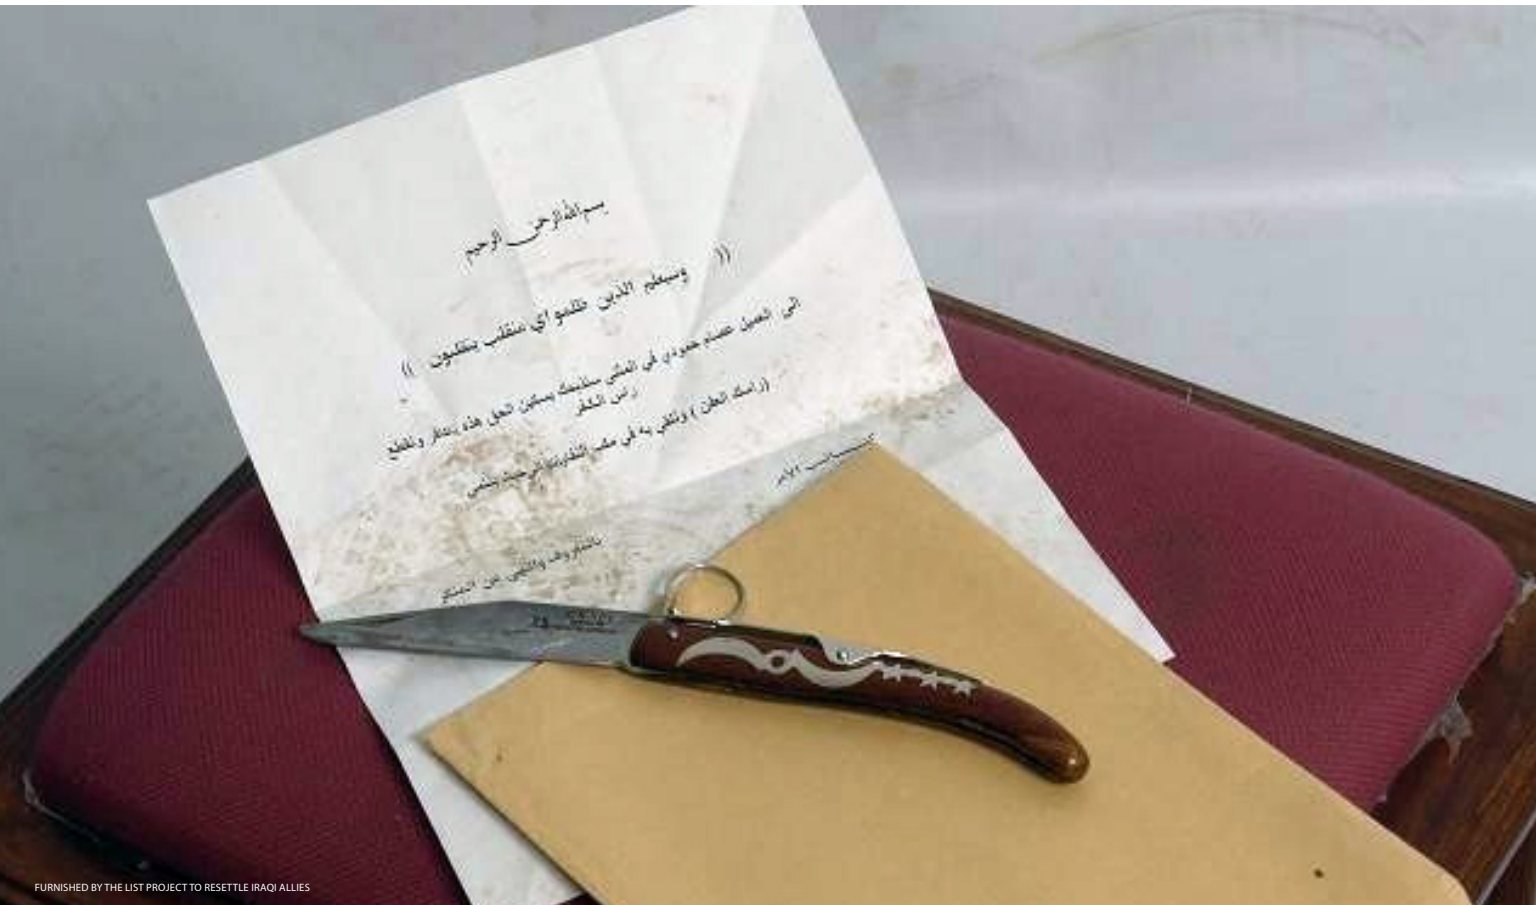 بسم الله الرحمن الرحيم
(( وسيعلم الذين ظلمو اي منقلب ينقلبون ))
الى العميل عصام حمودي في المثنى سنذبحك بسكين الحق هذه ياكافر ونقطع
راس الكفر
(راسك العفن ) ونلقي به في مكب النفايات
كتائب الامر
بالمعروف والنهي عن المنكر
FURNISHED BY THE LIST PROJECT TO RESETTLE IRAQI ALLIES